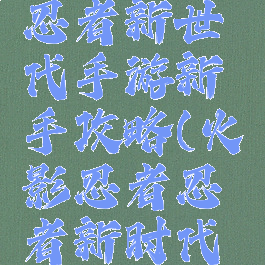 忍者新世
代手游新
手攻略(火
影忍者忍
者新时代